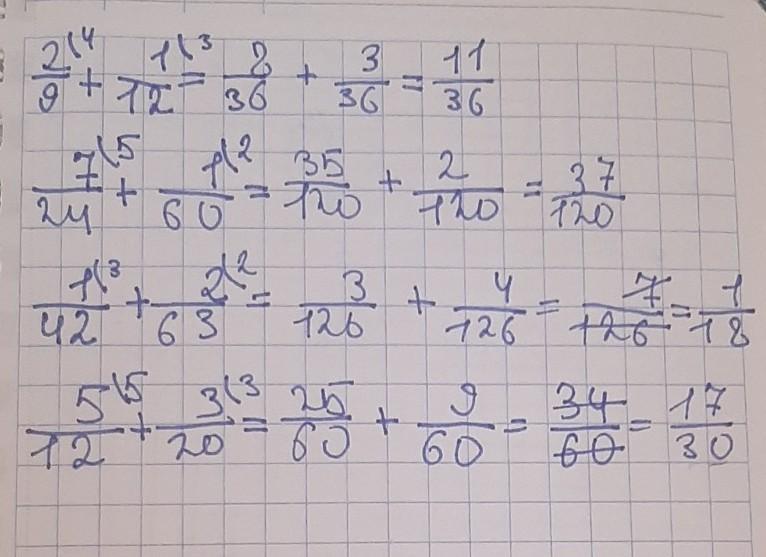 2/9\4 + 1/12\3 = 8/36 + 3/36 = 11/36
7/24\5 + 1/60\2 = 35/120 + 2/120 = 37/120
1/42\3 + 2/63\2 = 3/126 + 4/126 = 7/126 = 1/18
5/12\5 + 3/20\3 = 25/60 + 9/60 = 34/60 = 17/30